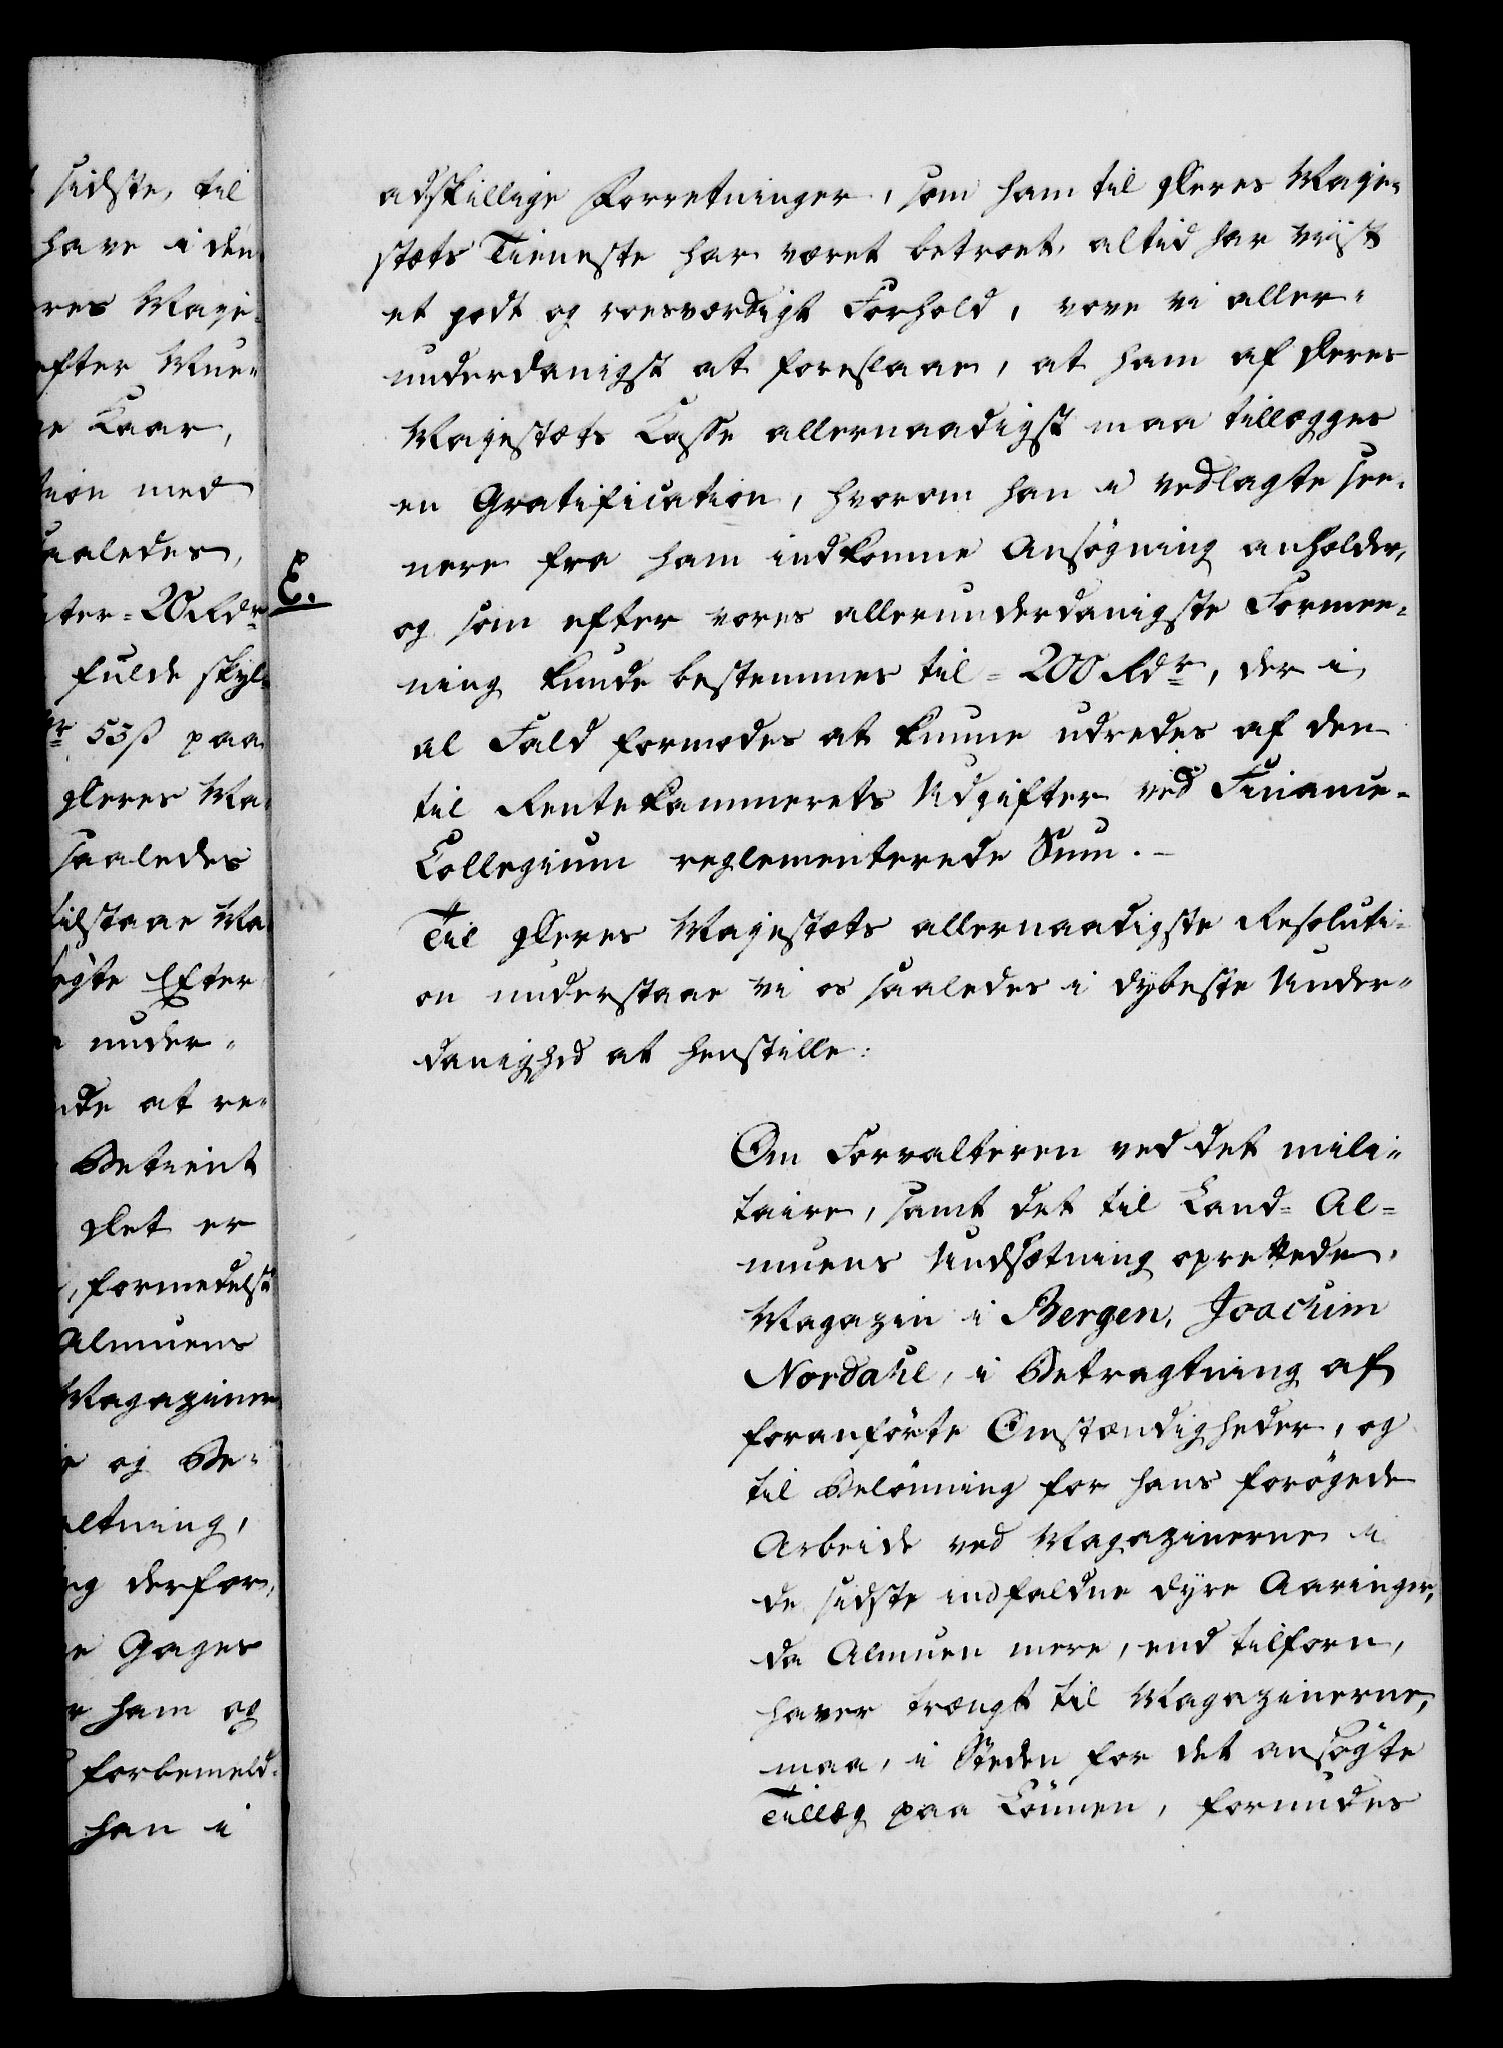 sidste, til
have i den
res Maje-
efter Mue-
e Kaar,
tion med
aaledes,
ter = 20 Rdr
fulde skyl-
53 ß paa
Deres Ma-
saaledes
tilstaae Ma
søgte Efter
under-
nde at re-
Betient
Det er
, formedelst
Almuens
Magaziner
e og Be-
altning,
ng derfor,
e Gages
ham og
forbemeld-
han i
E.
adskillige Forretninger, som ham til Deres Maje-
stæts Tieneste har været betroet, altid har viist
et godt og roesværdigt Forhold, vove vi aller-
underdanigst at foreslaae, at ham af Deres
Majestæts Casse allernaadigst maa tillægges
en Gratification, hvorom han i vedlagte see-
nere fra ham indkomne Ansøgning anholder,
og som efter vores allerunderdanigste Formee-
ning kunde bestemmes til = 200 Rdr, der i
al Fald formodes at kunne udredes af den
til Rentekammerets Udgifter ved Finance-
Collegium reglementerede Sum. -
Til Deres Majestæts allernaadigste Resoluti-
on understaae vi os saaledes i dybeste Under-
danighed at henstille:
Om Forvalteren ved det mili-
taire, samt det til Land- Al-
muens Undsætning oprettede
Magazin i Bergen, Joachim
Nordahl, i Betragtning af
foranførte Omstændigheder, og
til Belønning for hans forøgede
Arbeide ved Magazinerne i
de sidste indfaldne dyre Aaringer,
da Almuen mere, end tilforn,
haver trængt til Magazinerne,
maa, i Steden for det ansøgte
Tillæg paa Lønnen, forundes